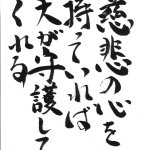 慈悲の心を
持っていれば
天が守護して
くれる